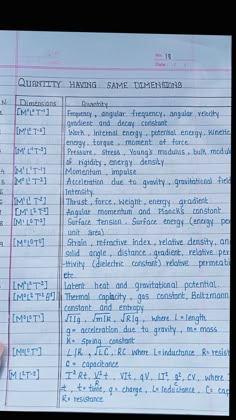 No: 18
Date
QUANTITY HAVING SAME DIMENSIONS
N. Dimensions Quantity
[M⁰L⁰T⁻¹] Frequency, angular frequency, angular velocity
gradient and decay constant
[M¹L²T⁻²] Work, internal energy, potential energy, kinetic
energy, torque, moment of force
[M¹L⁻¹T⁻²] Pressure, stress, Young's modulus, bulk modul
of rigidity, energy density
[M¹L¹T⁻¹] Momentum, impulse
[M⁰L¹T⁻²] Acceleration due to gravity, gravitational field
intensity
[M¹L¹T⁻²] Thrust, force, weight, energy gradient
[M¹L²T⁻¹] Angular momentum and Planck's constant
[M¹L⁰T⁻²] Surface Tension, Surface energy (energy per
unit area)
[M⁰L⁰T⁰] Strain, refractive index, relative density, an
solid angle, distance gradient, relative per
ttivity (dielectric constant) relative permeab
etc.
[M⁰L²T⁻²] Latent heat and gravitational potential
Thermal capacity, gas constant, Boltzmann
constant and entropy
[M⁰L⁰T¹] √l/g, √m/k, √R/g, where l = length
g = acceleration due to gravity, m = mass
K = spring constant
L/R, √LC, RC where L = inductance R = resist
C = capacitance
[M L²T⁻²] I²Rt, VIt, qV, LI², CV², where
t = time, q = charge, L = Inductance, C = cap
R = resistance